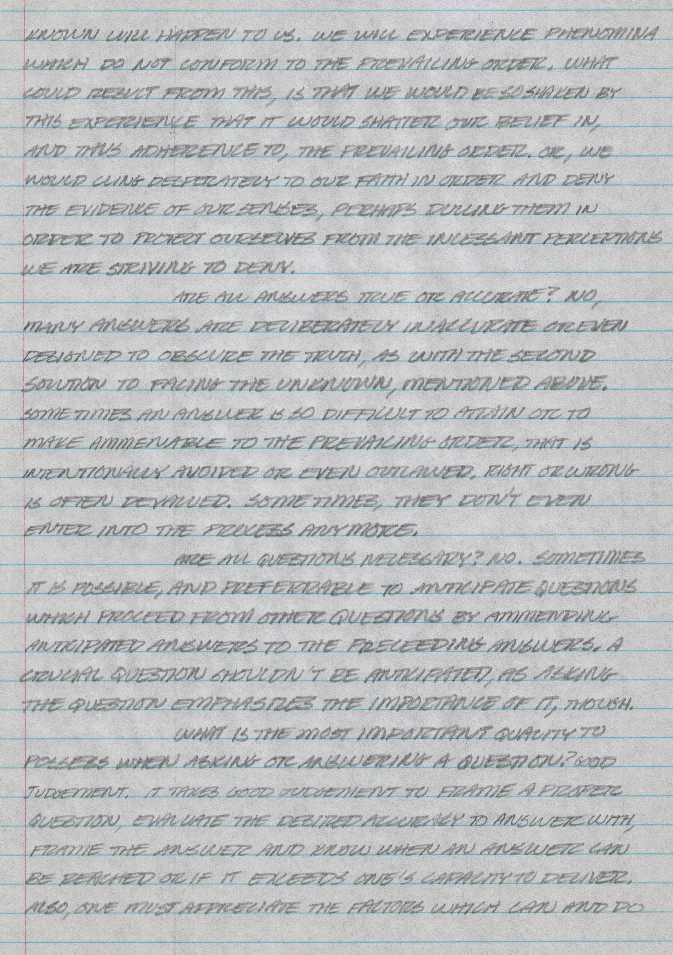 KNOWN WILL HAPPEN TO US. WE WILL EXPERIENCE PHENOMINA
WHICH DO NOT CONFORM TO THE PREVAILING ORDER. WHAT
COULD RESULT FROM THIS, IS THAT WE WOULD BE SO SHAKEN BY
THIS EXPERIENCE THAT IT WOULD SHATTER OUR BELIEF IN,
AND THUS ADHERENCE TO, THE PREVAILING ORDER. OR, WE
WOULD CLING DESPERATELY TO OUR FAITH IN ORDER AND DENY
THE EVIDENCE OF OUR SENSES, PERHAPS DULLING THEM IN
ORDER TO PROTECT OURSELVES FROM THE INCESSANT PERCEPTIONS
WE ARE STRIVING TO DENY.
ARE ALL ANSWERS TRUE OR ACCURATE? NO,
MANY ANSWERS ARE DELIBERATELY INACCURATE OR EVEN
DESIGNED TO OBSCURE THE TRUTH, AS WITH THE SECOND
SOLUTION TO FACING THE UNKNOWN, MENTIONED ABOVE.
SOMETIMES AN ANSWER IS SO DIFFICULT TO ATTAIN OR TO
MAKE AMMENABLE TO THE PREVAILING ORDER, THAT IS
INTENTIONALLY AVOIDED OR EVEN OUTLAWED. RIGHT OR WRONG
IS OFTEN DEVALUED. SOMETIMES, THEY DON'T EVEN
ENTER INTO THE PROCESS ANYMORE.
ARE ALL QUESTIONS NECESSARY? NO. SOMETIMES
IT IS POSSIBLE, AND PREFERRABLE TO ANTICIPATE QUESTIONS
WHICH PROCEED FROM OTHER QUESTIONS BY AMMENDING
ANTICIPATED ANSWERS TO THE PRECEEDING ANSWERS. A
CRUCIAL QUESTION SHOULDN'T BE ANTICIPATED, AS ASKING
THE QUESTION EMPHASIZES THE IMPORTANCE OF IT, THOUGH.
WHAT IS THE MOST IMPORTANT QUALITY TO
POSSESS WHEN ASKING OR ANSWERING A QUESTION? GOOD
JUDGEMENT. IT TAKES GOOD JUDGEMENT TO FRAME A PROPER
QUESTION, EVALUATE THE DESIRED ACCURACY TO ANSWER WITH,
FRAME THE ANSWER AND KNOW WHEN AN ANSWER CAN
BE REACHED OR IF IT EXCEEDS ONE'S CAPACITY TO DELIVER.
ALSO, ONE MUST APPRECIATE THE FACTORS WHICH CAN AND DO